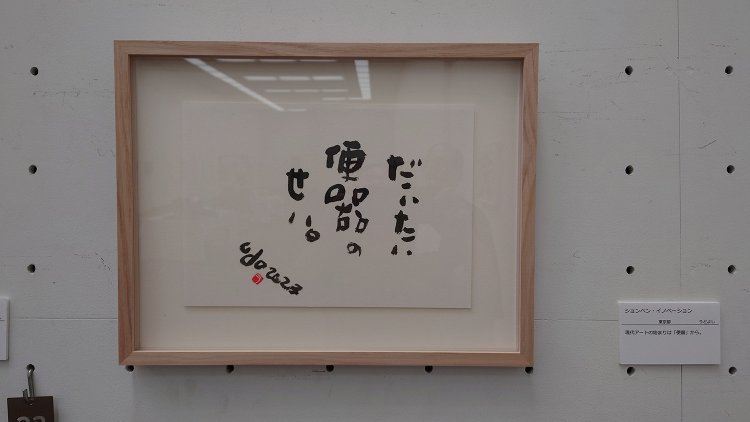 だいたい
便器の
せい。
udo 2023
ションベン・イノベーション
東京都
うどよし
現代アートの始まりは「便器」から。